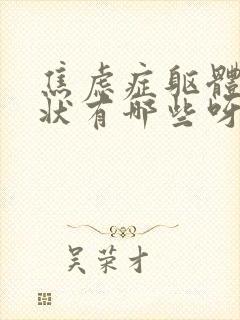 焦虑症躯體
状有哪些呀
吴荣才